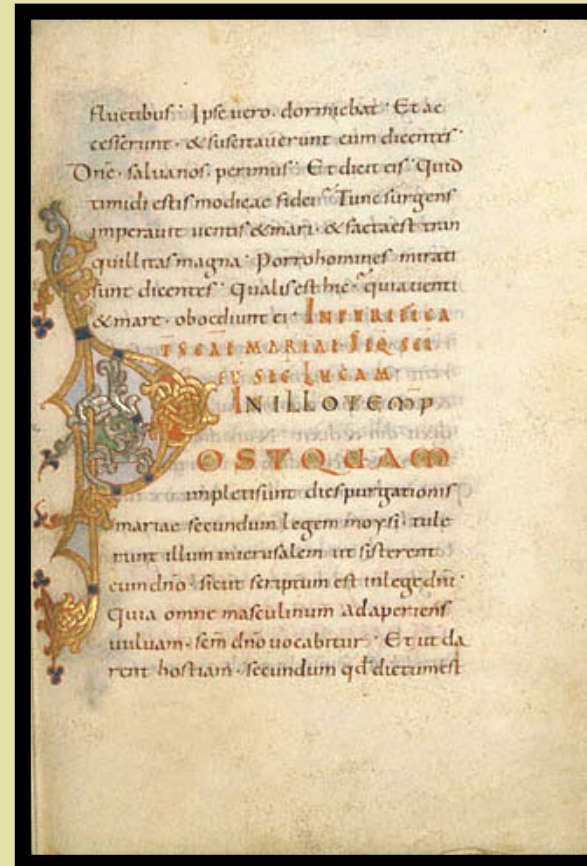 fluctibus· Ipse uero· dormiebat· Et ac
cesserunt· & suscitauerunt eum dicentes·
Dn̄e· saluanos· perimus· Et dicit eis· Quid
timidi estis modicae fidei· Tunc surgens
imperauit uentis & mari· & facta est tran
quillitas magna· Porro homines mirati
sunt dicentes· Qualis est hic· quia uenti
& mare· oboediunt ei· IN PURIFICA
SCAE MARIAE SEQ SCI
EU SEC LUCAM·
IN ILLO TEMP
POSTQUAM
impleti sunt dies purgationis
mariae secundum legem moysi· tule
runt illum in ierusalem ut sisterent
eum dn̄o· sicut scriptum est in lege dn̄i·
Quia omne masculinum adaperiens
uuluam· scm̄ dn̄o uocabitur· Et ut da
rent hostiam· secundum qd̄ dictum est